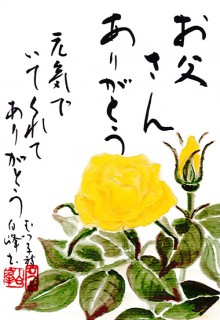 お父
さん
ありがとう
元気で
いてくれて
ありがとう